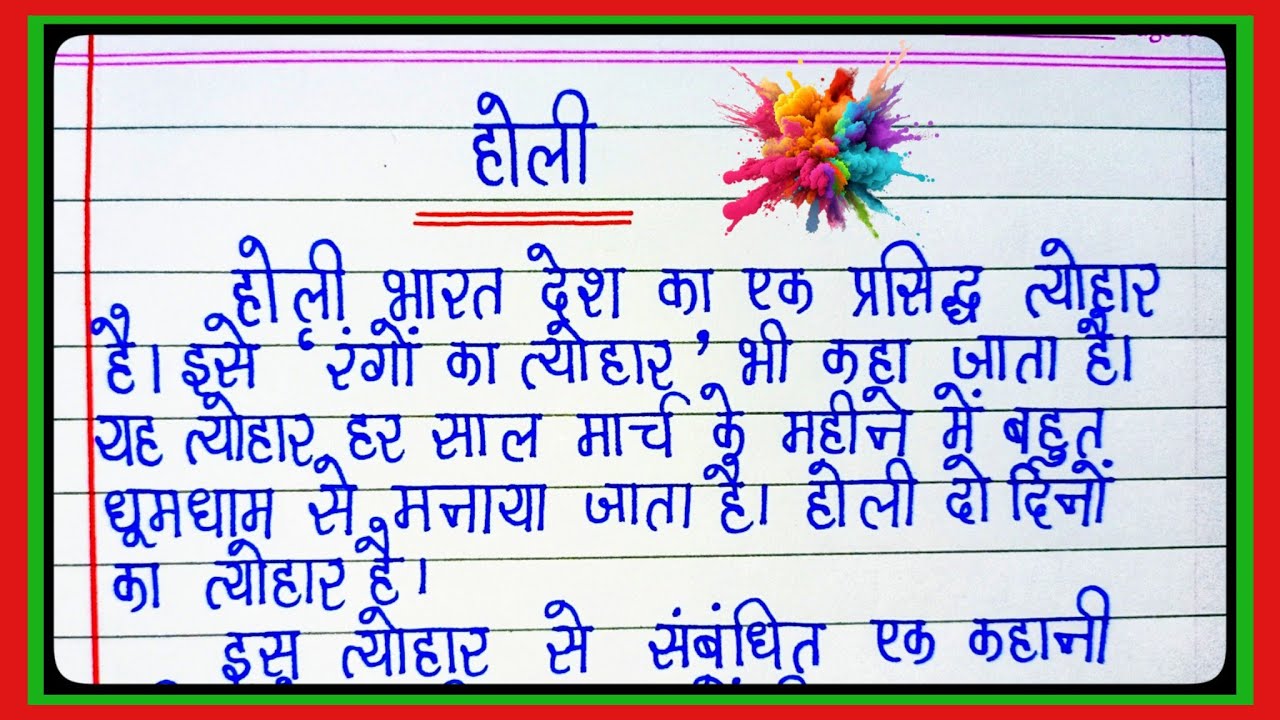 होली
होली भारत देश का एक प्रसिद्ध त्योहार
है। इसे ‘रंगों का त्योहार’ भी कहा जाता है।
यह त्योहार हर साल मार्च के महीने में बहुत
धूमधाम से मनाया जाता है। होली दो दिनों
का त्योहार है।
इस त्योहार से संबंधित एक कहानी